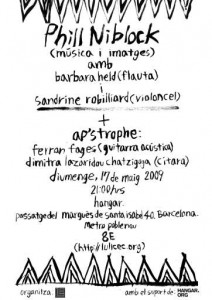 Phill Niblock
(música i imatges)
amb
barbara held (flauta)
i
sandrine robilliard (violoncel)
+
ap'strophe:
ferran fages (guitarra acústica)
dimitra lazaridou chatzigoga (cítara)
diumenge, 17 de maig 2009
21:00hrs
hangar.
passatge del marquès de santa isabel 40. Barcelona.
Metro poblenou
8€
(http://lulicec.org)
organitza:
amb el suport de: HANGAR.ORG